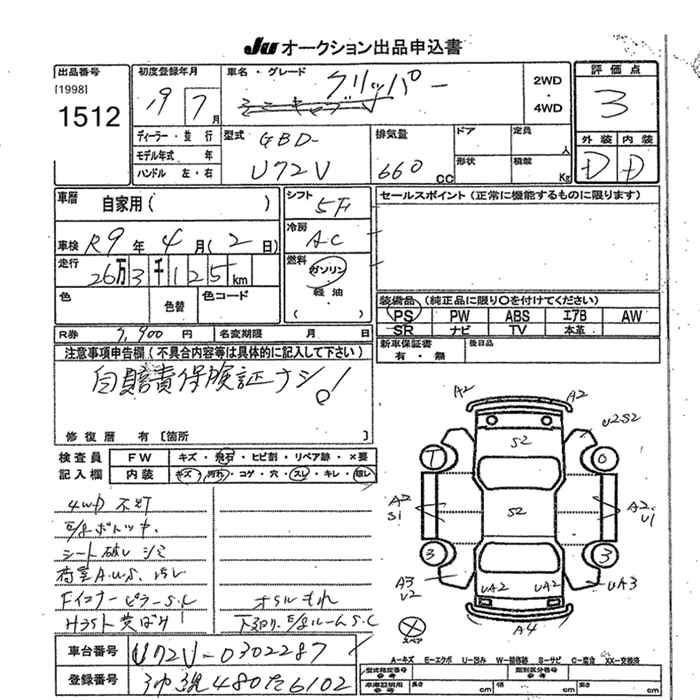 JU オークション出品申込書
出品番号
[1998]
1512
初度登録年月
19 7 月
車名・グレード
クリッパー
2WD
・
4WD
評価点
3
外装 内装
D D
ディーラー・並行
モデル年式 年
ハンドル 左・右
型式 GBD-
U72V
排気量
660 CC
ドア
定員 人
形状
積載 Kg
車歴
自家用( )
車検 R9 年 4 月( 2 日)
走行
26万3千125km
色
色替
色コード
シフト 5F
冷房 AC
燃料
ガソリン
軽油
( )
セールスポイント(正常に機能するものに限ります)
装備品(純正品に限り○を付けてください)
PS PW ABS エアB AW
SR ナビ TV 本革
新車保証書
有・無
後日品
R券 9,900 円
名変期限 月 日
注意事項申告欄(不具合内容等は具体的に記入して下さい)
自賠責保険証ナシ!
修復歴 有[箇所 ]
検査員
記入欄
FW キズ・飛石・ヒビ割・リペア跡・×要
内装 キズ・汚れ・コゲ・穴・スレ・キレ・破レ
4WD 不灯
シート破レ シミ
荷室A.U.S.
Fインナーピラー S.C
オイルもれ
下回り、E/gルームS.C
A2
A2
U2S2
S2
T
0
A2
S1
S2
A2
U1
3
3
A3
U2
UA2
UA2
UA3
A4
スペア
A-キズ E-エクボ U-凹ミ W-補修跡 S-サビ C-腐食 XX-交換済
車台番号 U72V-0302287
登録番号 沖縄480た6102
型式指定番号
参考
類別区分番号
参考
車庫証明用
参考
長 cm
幅 cm
高 cm